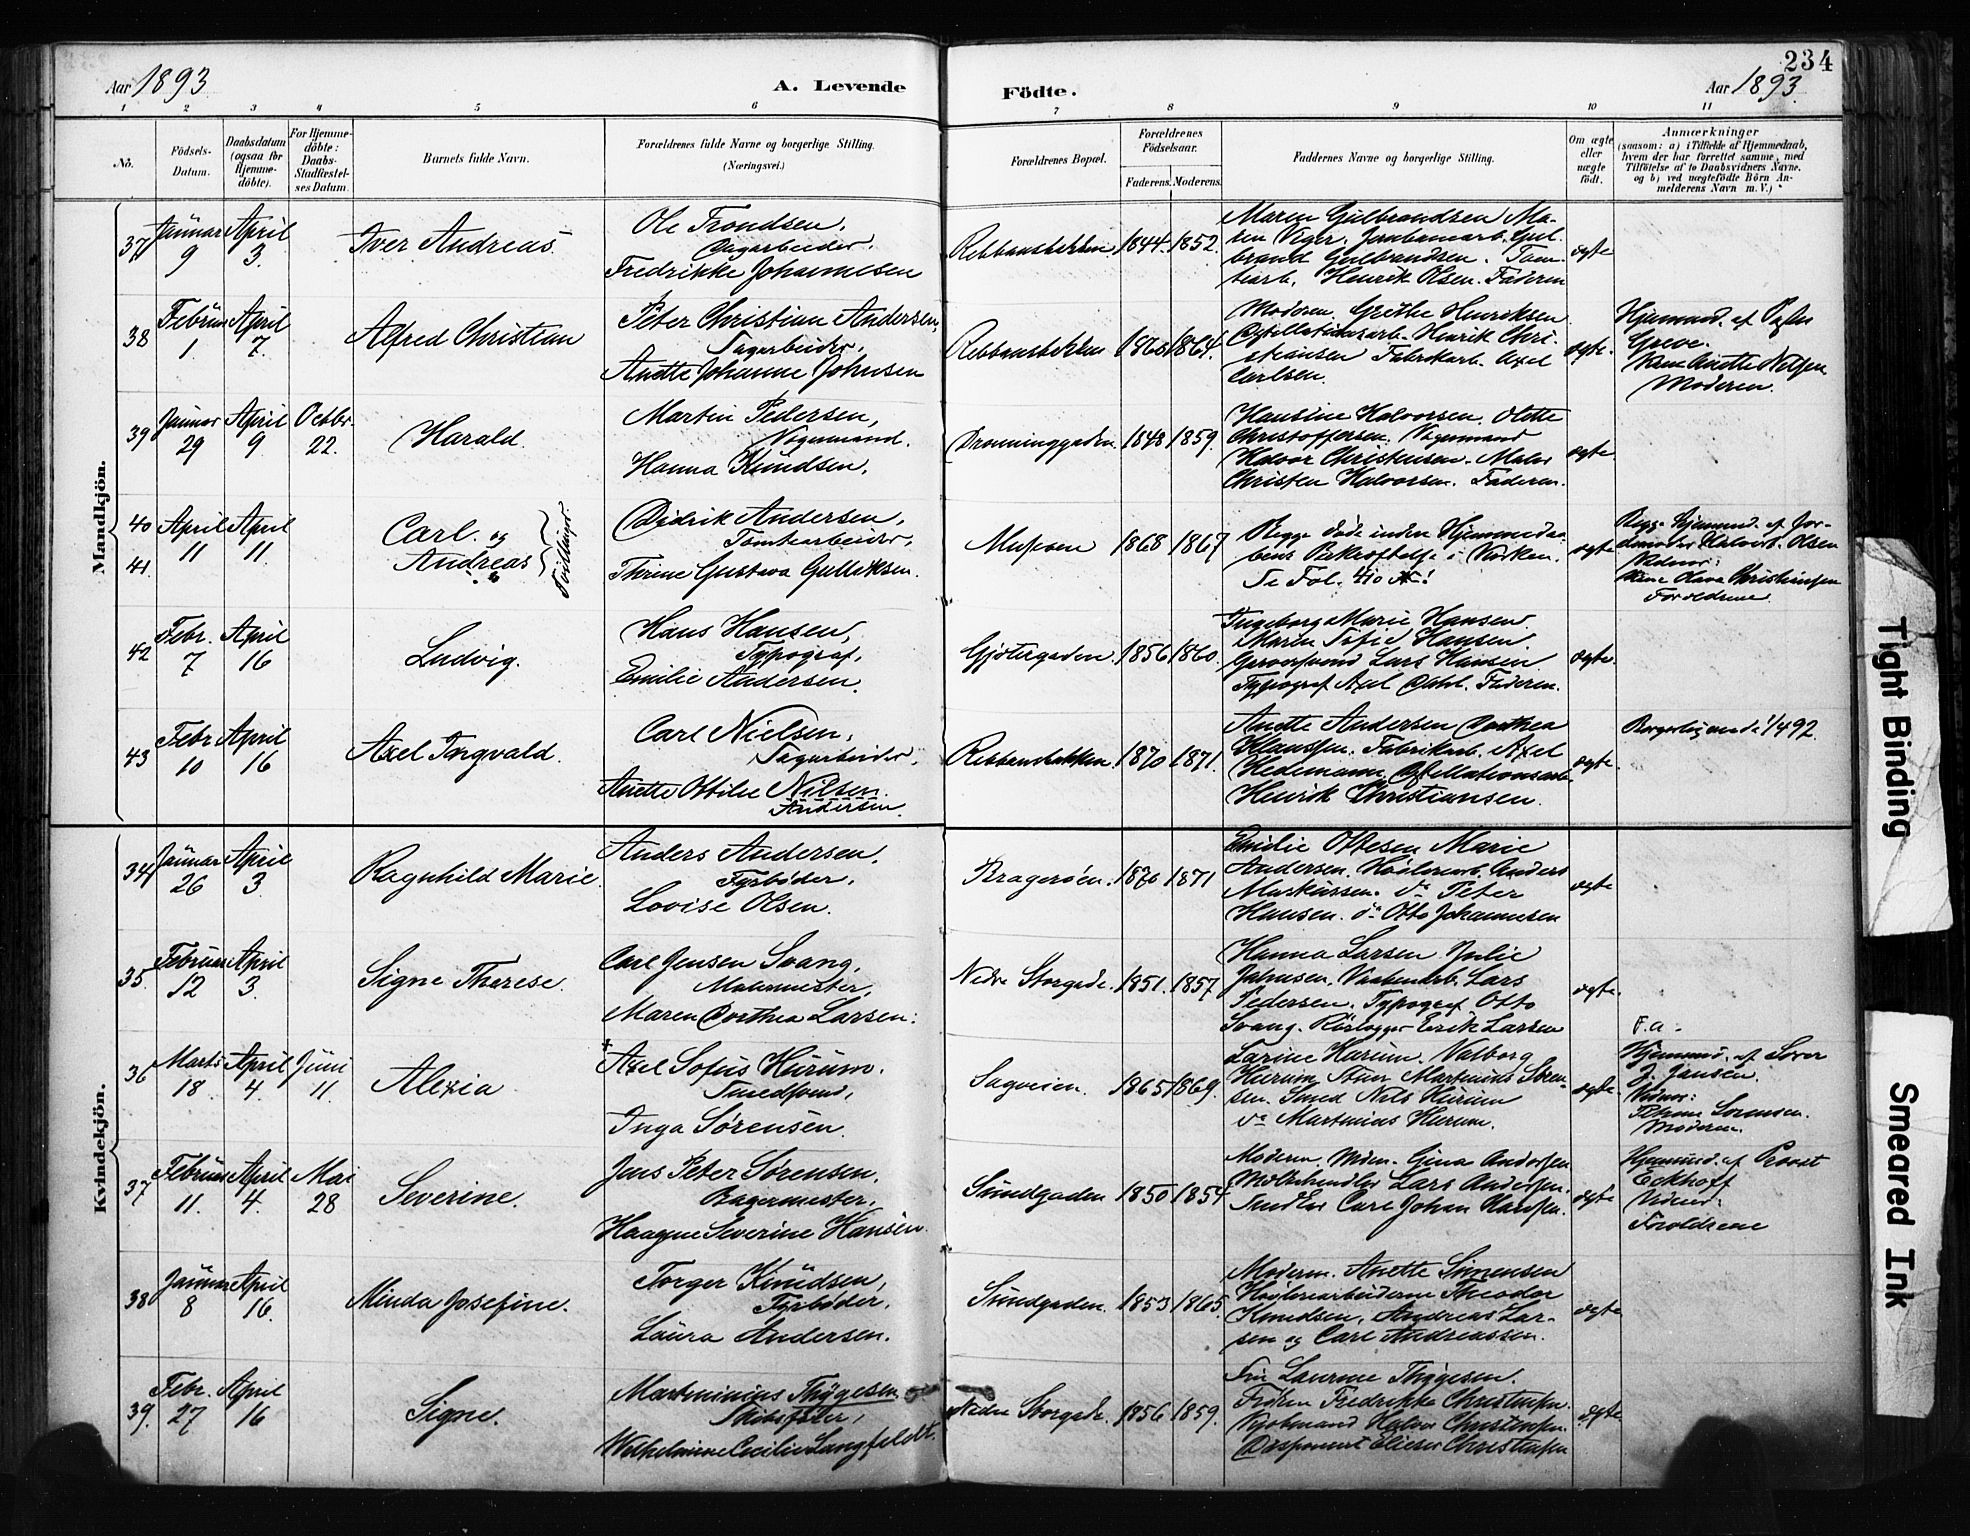 234
Aar 1893
A. Levende
Födte.
Aar 1893.
1 2 3 4 5 6 7 8 9 10 11
No.
Födsels-
Datum.
Daabsdatum
(ogsaa for
Hjemme-
döbte).
For Hjemme-
döbte:
Daabs-
Stadfæstel-
ses Datum.
Barnets fulde Navn.
Forældrenes fulde Navne og borgerlige Stilling.
(Næringsvei.)
Forældrenes Bopæl.
Forældrenes
Födselsaar.
Faderens. Moderens.
Faddernes Navne og borgerlige Stilling.
Om ægte
eller
uægte
födt.
Anmærkninger
(saasom: a) i Tilfælde af Hjemmedaab,
hvem der har forrettet samme, med
Tilföielse af to Daabsvidners Navne,
og b) ved uægtefödte Börn An-
melderens Navn m. V.)
Mandkjön.
37 Januar 9 April 3. Iver Andreas.
Ole Trondsen,
Dagarbeider.
Fredrikke Johannesen
Rebbansbakken 1844 1852.
Maren Gulbrandsen Ma-
ren Viger. Jernbanearb. Gul-
brand Gulbrandsen. Tom-
tearb. Henrik Olsen. Faderen
ægte
38 Februar 1 April 7. Alfred Christian
Peter Christian Andersen,
Sagarbeider,
Anette Johanne Johnsen
Rebbansbakken 1864.
Moderen. Grethe Henriksen
Henrik Chri-
stiansen Fabrikarb. Axel
Carlsen.
ægte.
Hjemmed. af
Greve.
Anette Nilsen
Moderen.
39 Januar 29 April 9 Octbr. 22. Harald.
Martin Pedersen,
Vognmand.
Hanna Knudsen.
Dronninggaden 1848 1859.
Hansine Halvorsen. Olette
Christoffersen. Vognmand
Halvor Christensen. Maler
Christen Halvorsen. Faderen.
ægte.
40 41. April 11 April 11. Carl og
Andreas
Tvillinger.
Didrik Andersen,
Tomtearbeider,
Thrine Gustava Gulliksen.
Museøen 1868 1867
Begge døde inden Hjemmedaa-
bens Bekræftelse i Kirken.
Se Fol. 410
ægte
Begge Hjemmed. af Jor-
demoder Halvor. Olsen
Vidner:
Olava Christiansen
Forældrene.
42 Febr. 7 April 16 Ludvig.
Hans Hansen,
Typograf,
Emilie Andersen.
Gjetergaden 1856 1860.
Ingeborg Marie Hansen.
Maren Sofie Hansen
Garversvend Lars Hansen
Typograf Axel Dahl. Faderen.
ægte.
43 Febr. 10 April 16 Axel Ingvald.
Carl Nielsen,
Sagarbeider,
Anette Ottilie Nilsen.
Andersen.
Rebbansbakken 1870 1871.
Anette Andersen Dorthea
Claussen. Fabrikarb. Axel
Hedemann,
Henrik Christiansen.
ægte.
Kvindekjön.
34 Januar 26 April 3. Ragnhild Marie.
Anders Andersen,
Fyrbøder,
Lovise Olsen.
Bragerøen. 1870 1871
Emilie Oftesen Marie
Andersen. Høvleriarb. Anders
Markussen. do Peter
Hansen. do Otto Johannesen
ægte
35 Februar 12 April 3. Signe Therese.
Carl Jensen Svang,
Malermester,
Maren Dorthea Larsen.
Nedre Storgade. 1851. 1857
Hanna Larsen Julie
Johnsen. Lars
Pedersen. Typograf Otto
Svang. Rørlægger Erik Larsen
ægte.
36 Marts 18 April 4. Juni 11. Alexia
Axel Sofus Hurum.
Smedsvend,
Inga Sørensen.
Sagveien. 1865 1869.
F.a:
Larine Hurum. Valborg
Hurum Stuer Martinius Søren-
sen. Smed Nils Hurum
do Martinius Hurum.
ægte.
Hjemmed. af
J. Jansen.
Vidner:
Sørensen.
Moderen.
37 Februar 11. April 4. Mai 28 Severine.
Jens Peter Sørensen.
Bagermester,
Haagine Severine Hansen.
Sundgaden 1850 1854
Moderen. Gina Andersen
Lars Andersen.
Carl Johan Hansen.
ægte
Hjemmed. af Provst
Eckhoff
Vidner:
Forældrene
38 Januar 8 April 16. Minda Josefine.
Torger Knudsen,
Fyrbøder.
Laura Andersen.
Sundgaden. 1853 1865.
Moderen. Anette Simensen
Høvleriarbeiderne Theodor
Knudsen, Andreas Lar-
sen og Carl Andreassen.
ægte
39. Febr. 27 April 16 Signe.
Martinius Thygesen
Skibsfører,
Wilhelmine Cecilie Langfeldt.
Nedre Storgade. 1856 1859.
Fru Laurine Thygesen.
Frøken Fredrikke Christensen.
Kjøbmand Halvor Christensen.
Disponent Christensen
ægte
Tight Binding
Smeared Ink